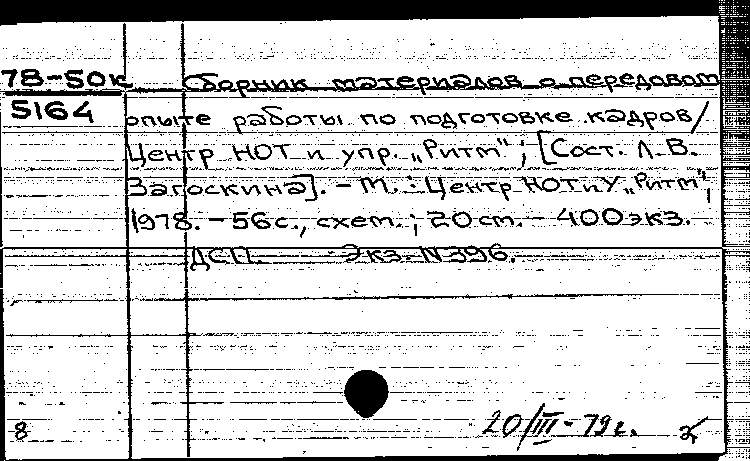 78-50к Сборник материалов о передовом
5164 опыте работы по подготовке кадров/
Центр НОТ и упр. „Ритм"; [Сост. Л.В.
Загоскина]. – М.: Центр НОТиУ „Ритм",
1978. – 56с., схем.; 20 см. – 400 экз.
ДСП. Экз. N396.
20/III-79г.
8